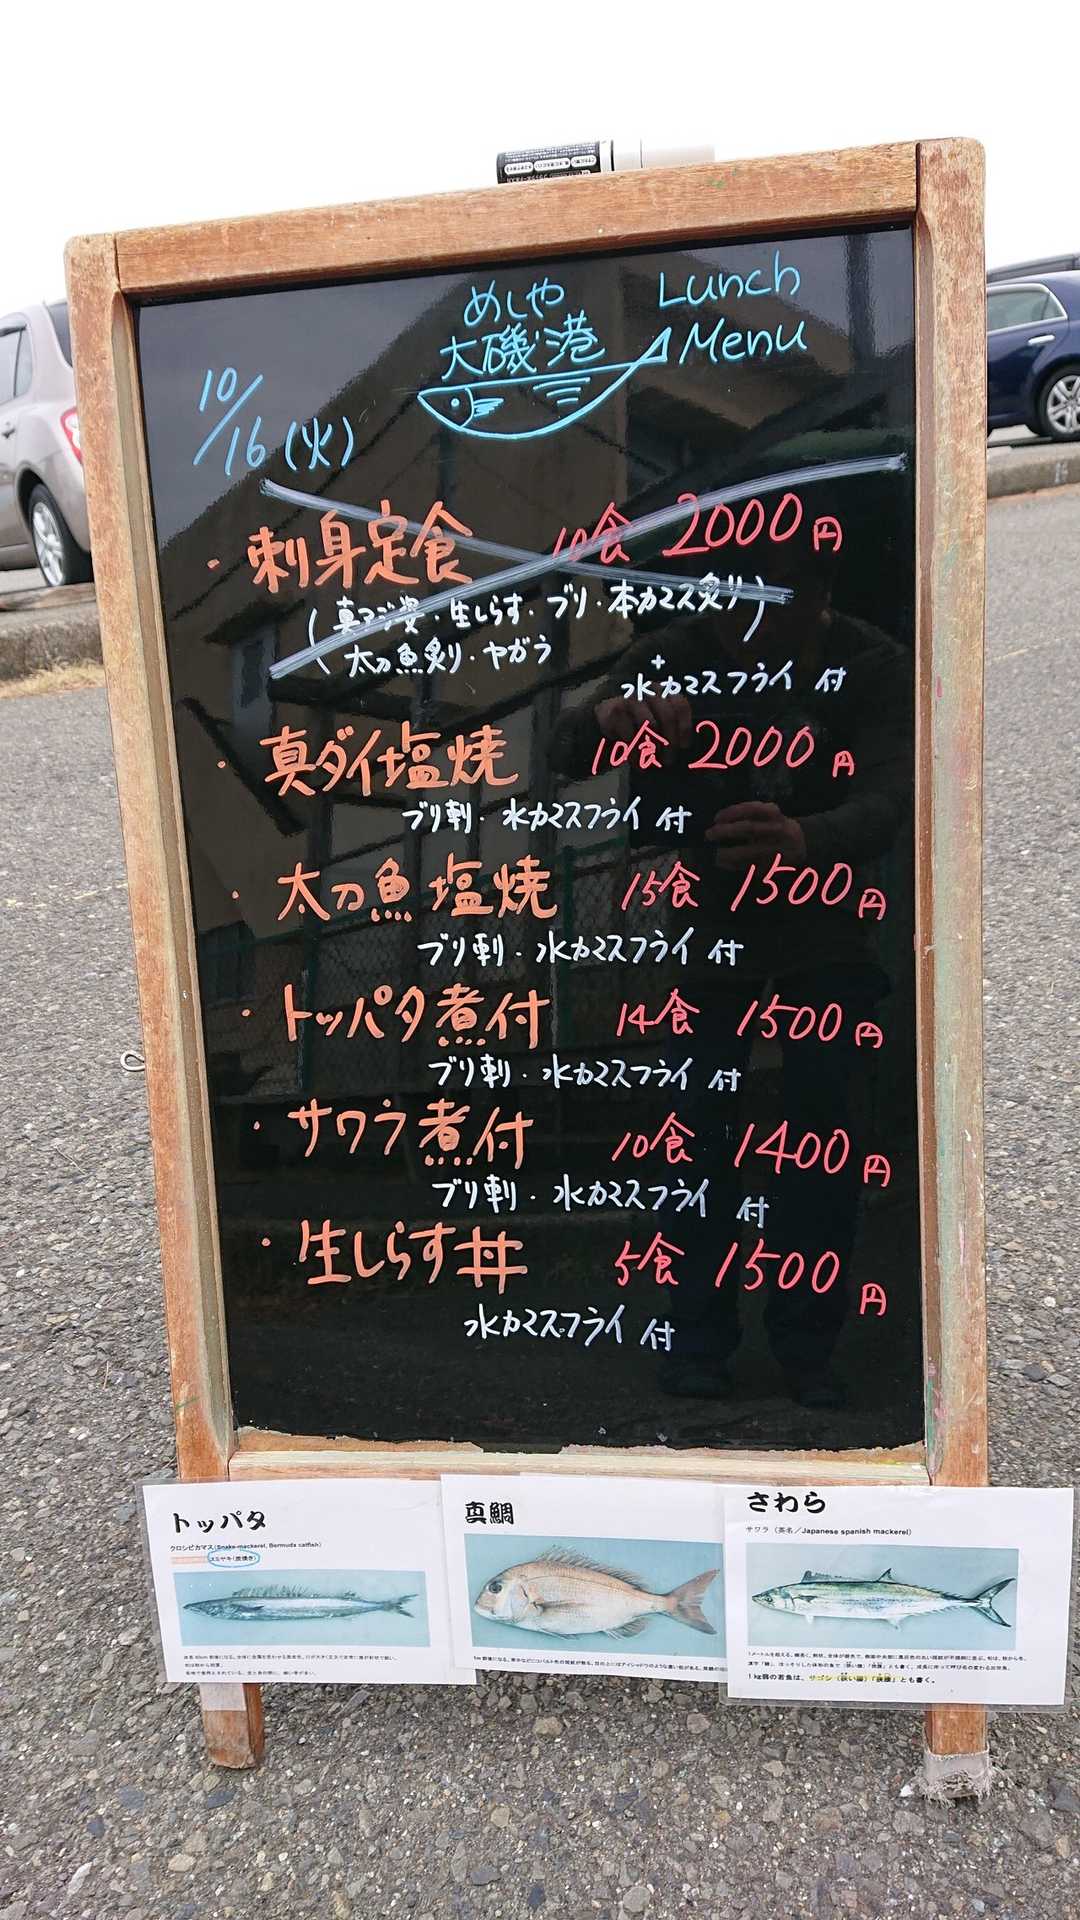 めしや
大磯港
Lunch
Menu
10/16(火)
・刺身定食 10食 2000円
(真アジ姿・生しらす・ブリ・本カマス炙り)
(太刀魚炙り・ヤガラ
+
水カマスフライ 付
・真ダイ塩焼 10食 2000円
ブリ刺・水カマスフライ 付
・太刀魚塩焼 15食 1500円
ブリ刺・水カマスフライ 付
・トッパタ煮付 14食 1500円
ブリ刺・水カマスフライ 付
・サワラ煮付 10食 1400円
ブリ刺・水カマスフライ 付
・生しらす丼 5食 1500円
水カマスフライ 付
トッパタ
クロシビカマス(Snake-mackerel, Bermuda catfish)
スミヤキ(炭焼き)
真鯛
さわら
サワラ(英名/Japanese spanish mackerel)
1kg弱の若魚は、サゴシ(狭い腹)「狭腰」とも書く。